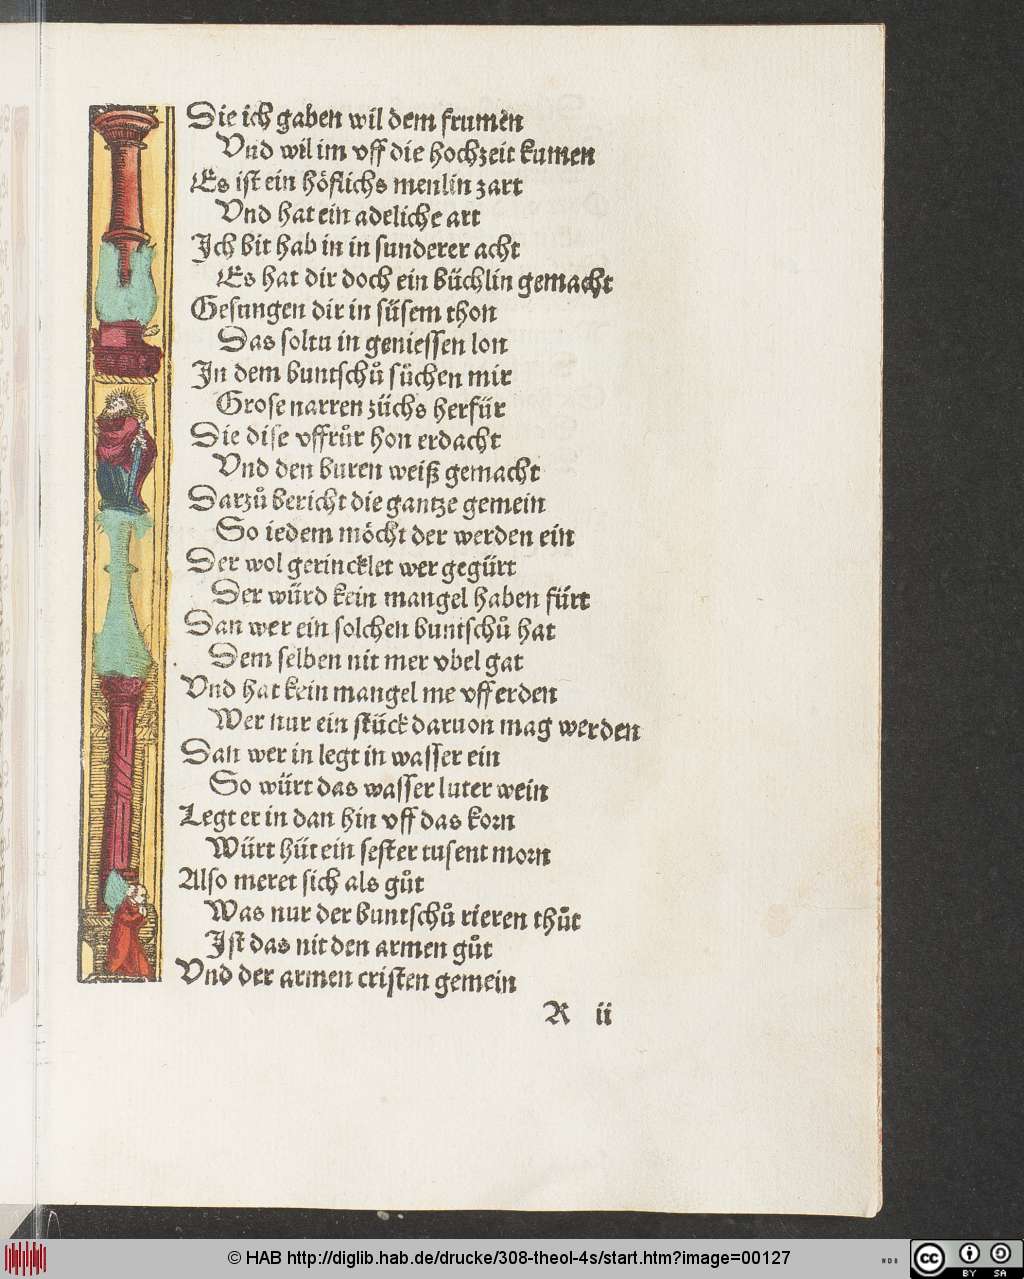 Die ich gaben wil dem frumẽn
Vnd wil im vff die hochzeit kumen
Es ist ein höflichs menlin zart
Vnd hat ein adeliche art
Ich bit hab in in sunderer acht
Es hat dir doch ein büchlin gemacht
Gesungen dir in süsem thon
Das soltu in geniessen lon
In dem buntschů sůchen mir
Grose narren züchs herfür
Die dise vffrůr hon erdacht
Vnd den buren weiß gemacht
Darzů bericht die gantze gemein
So iedem möcht der werden ein
Der wol gerincklet wer gegürt
Der würd kein mangel haben fürt
Dan wer ein solchen buntschů hat
Dem selben nit mer vbel gat
Vnd hat kein mangel me vff erden
Wer nur ein stück daruon mag werden
Dan wer in legt in wasser ein
So würt das wasser luter wein
Legt er in dan hin vff das korn
Würt hüt ein sester tusent morn
Also meret sich als gůt
Was nur der buntschů rieren thůt
Ist das nit den armen gůt
Vnd der armen cristen gemein
R ii
© HAB http://diglib.hab.de/drucke/308-theol-4s/start.htm?image=00127
WDB
cc
BY SA